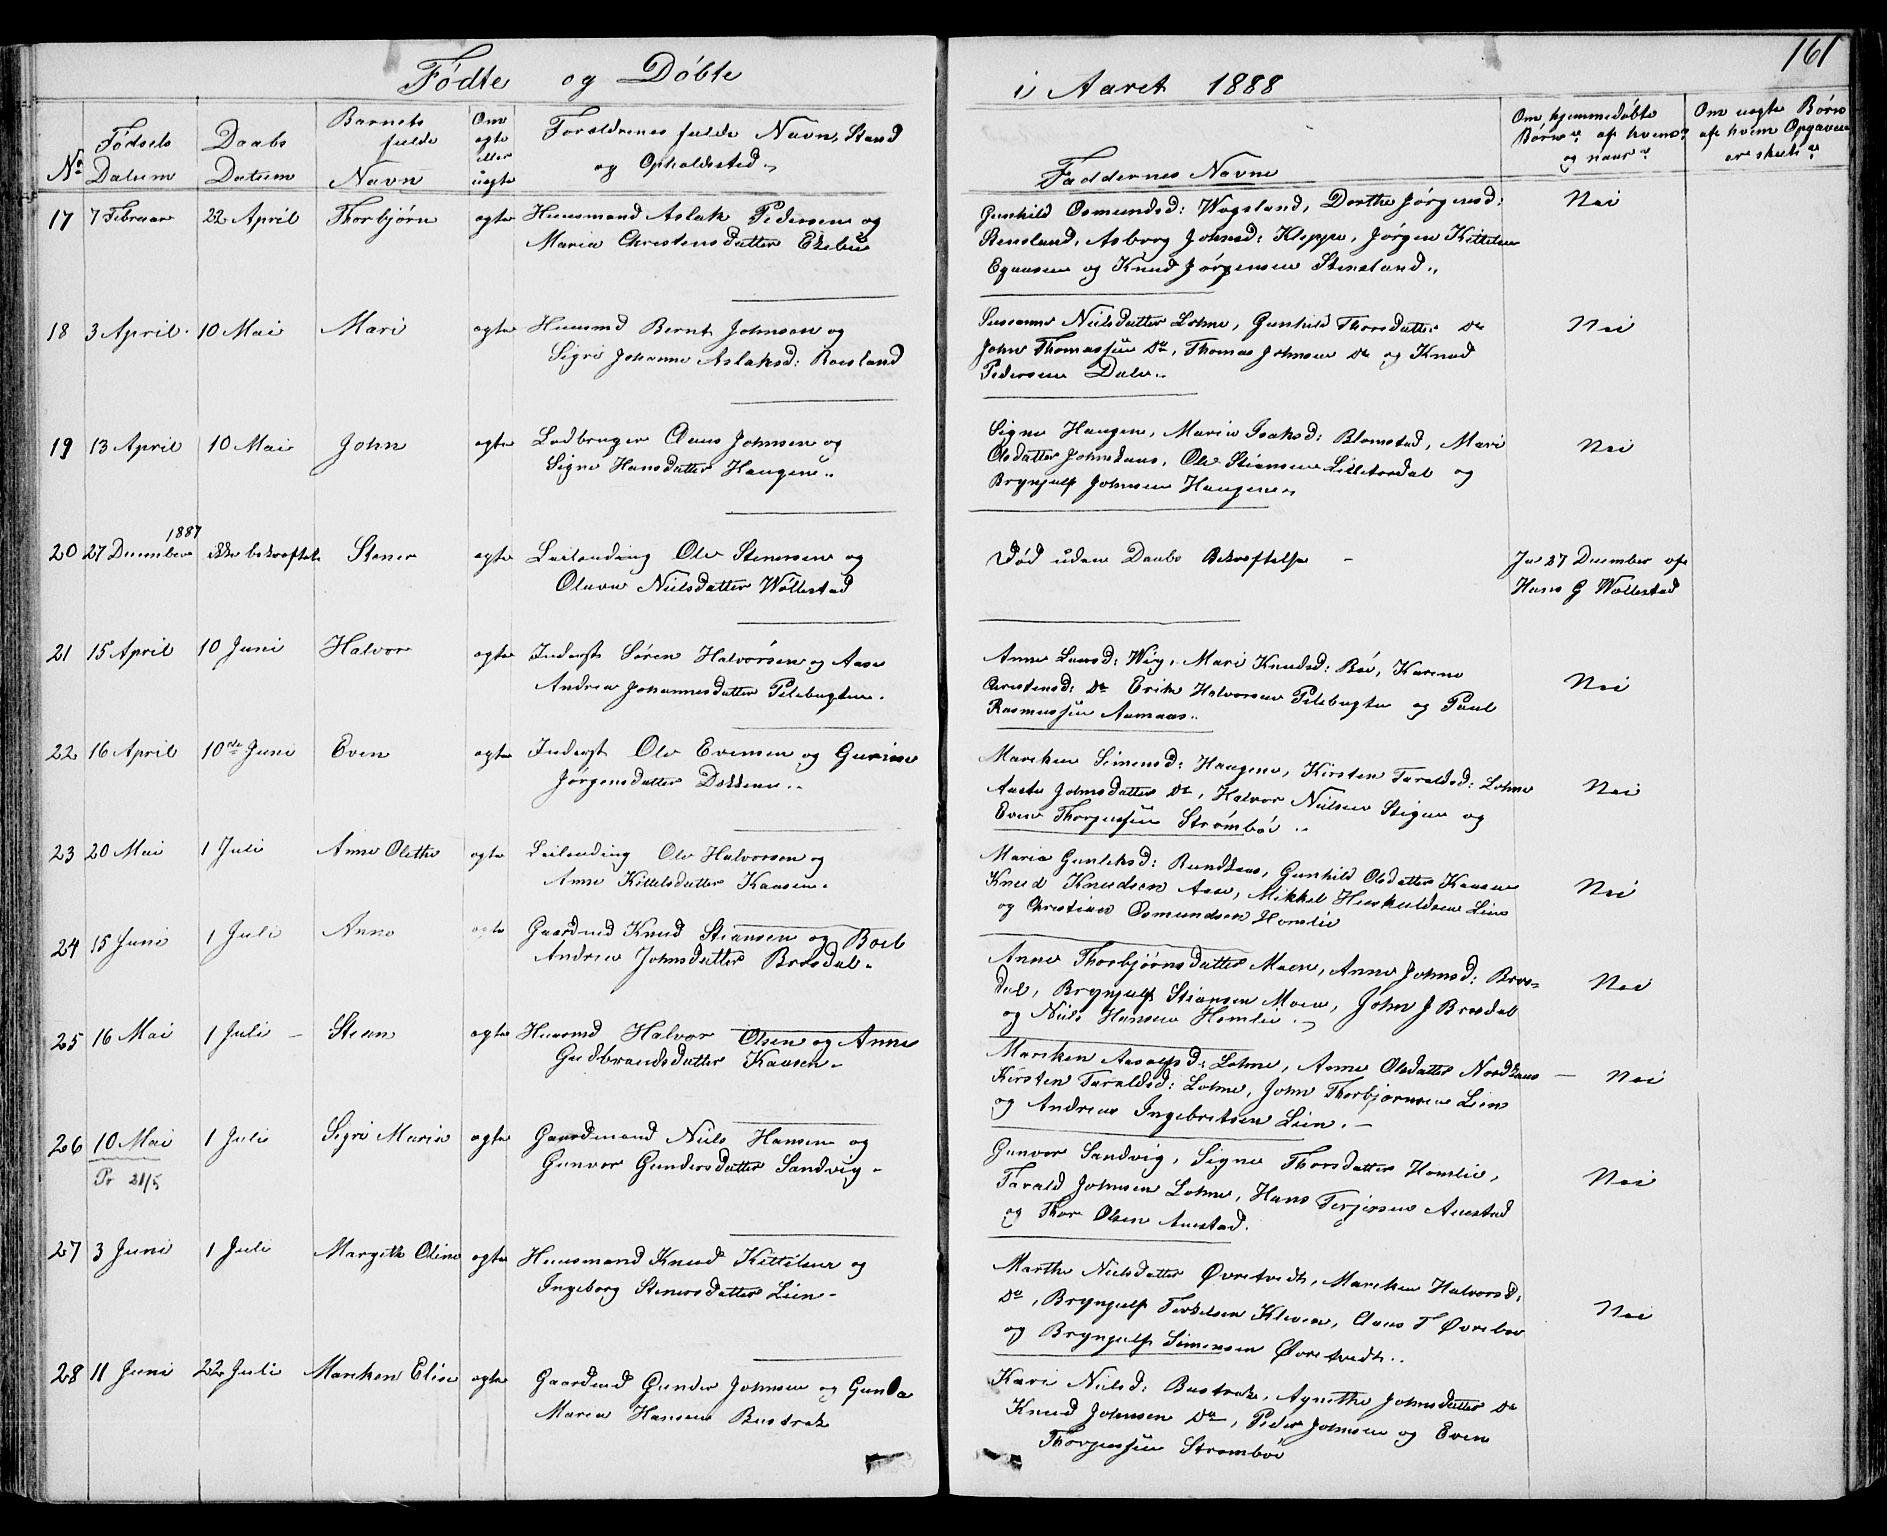 161
Fødte og Døbte i Aaret 1888
No Fødsels Datum Daabs Datum Barnets fulde Navn Om ægte eller uægte Forældrenes fulde Navn, Stand og Opholdssted Faddernes Navne Om hjemmedøbte Børn af hvem og naar Om uægte Børn af hvem Opgaven er skeet
17 7 Februar 22 April Thorbjørn ægte Huusmand Aslak Pedersen og
Maria Christensdatter Ekelie
Gunhild Osmundsd: Wogsland, Dorthe Jørgensd: Nei
Stensland, Asborg Johnsd: Kleppe, Jørgen Kittelsen
og Knud Jørgensen Stensland
18 3 April 10 Mai Mari ægte Huusmd Bernt Johnsen og
Sigri Johanne Aslaksd: Roesland
Susanne Nielsdatter Lohne, Gunhild Thorsdatter Do Nei
John Thomassen Do, Thomas Johnsen Do og Knud
Pedersen Dale
19 13 April 10 Mai John ægte Claus Johnsen og
Signe Hansdatter Haugene
Signe Haugen, Marie Isaksd: Blomstad, Mari Nei
Olsdatter Johnskaas, Ole Stiansen og
Brynjulf Johnsen Haugene
20 27 December 1887 ikke bekræftet Stener ægte Leilending Ole Stenersen og
Olava Nielsdatter Wøllestad
Død uden Daabs Bekræftelse - Ja 27 December af
Hans G Wøllestad
21 15 April 10 Juni Halvor ægte Inderst Søren Halvorsen og Aase
Andrea Johannesdatter Pilebugten
Anne Larsd: Wig, Mari Knudsd: Bøe, Karene Nei
Christensd: Do Erik Halvorsen Pilebugten og Paul
Rasmussen Aamaas
22 16 April 10de Juni Even ægte Inderst Ole Evensen og Gurine
Jørgensdatter Dokkene
Mareken Simensd: Haugene, Kirsten Taraldsd: Lohne Nei
Aaste Johnsdatter Do, Halvor Nielsen Stigen og
Even Thorjussen Strømbøe
23 20 Mai 1 Juli Anne Olethe ægte Leilending Ole Halvorsen og
Anne Kittelsdatter Kaasen
Maria Gunleksd: Gunhild Olsdatter Kaasen Nei
Knud Knudsen Aase, Mikkel Huskuldsen Lien
og Christian Osmundsen Homlie
24 15 Juni 1 Juli Anne ægte Gaardmd Knud Stiansen og Boel
Andrea Johnsdatter Brosdal
Anne Thorbjørnsdatter Moen, Anne Johnsd: Bros- Nei
dal, Brynjulf Stiansen Moen, John J Brosdal
og Niels Hansen Homlie
25 16 Mai 1 Juli Stean ægte Huusmd Halvor Olsen og Anne
Gudbrandsdatter Kaasen
Mareken Aasolfsd: Lohne, Anne Olsdatter Nordkaas Nei
Kirsten Taraldsd: Lohne, John Thorbjørnsen Lien
og Andreas Ingebretsen Lien
26 10 Mai 1 Juli Sigri Marie ægte Gaardmand Niels Hansen og
Pr 21/5 Gunvor Gundersdatter Sandvig
Gunvor Sandvig, Signe Thorsdatter Homlie, Nei
Tarald Johnsen Lohne, Hans Terjesen Auestad
og Thor Olsen Auestad
27 3 Juni 1 Juli Margith Oline ægte Huusmand Knud Kittilsen og
Ingeborg Stenersdatter Lien
Marthe Nielsdatter Øvretvedt, Mareken Halvorsd: Nei
Do, Brynjulf Terkelsen Kleven, Claus T Øvrebøe
og Brynjulf Simensen Øvretvedt
28 11 Juni 22 Juli Mareken Elise ægte Gaardmd Gunder Johnsen og Gunda
Maria Hansen Bustrak
Kari Nielsd: Bustrak, Agnethe Johnsdatter Do
Knud Johnsen Do, Peder Johnsen og Even
Thorjussen Strømbøe